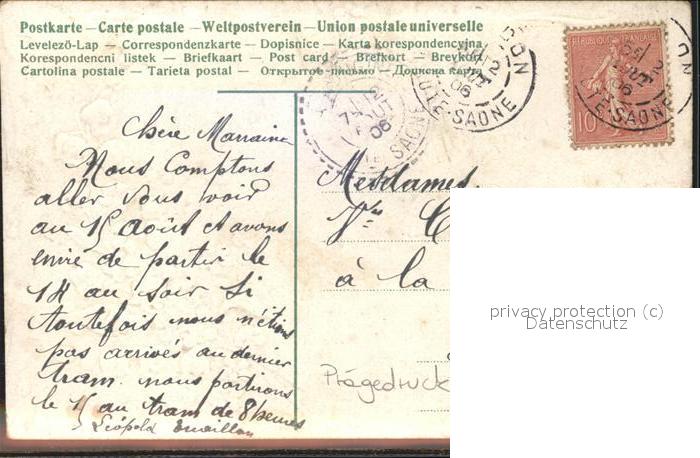 Postkarte – Carte postale – Weltpostverein – Union postale universelle
Levelező-Lap – Correspondenzkarte – Dopisnice – Karta korespondencyjna
Korespondencni listek – Briefkaart – Post card – Brefkort – Brevkort
Cartolina postale – Tarieta postal – Открытое письмо – Дописна карта
RÉPUBLIQUE FRANÇAISE
10
06
HTE-SAONE
12
06
SAONE
Chère Marraine
Nous Comptons
aller vous voir
au 15 août et avons
envie de partir le
14 au soir Si
toutefois nous n'étions
pas arrivés au dernier
tram. nous partirons
le 15 au tram de 8 heures
Léopold
Mesdames
Vve C
à la
Prägedruck
privacy protection (c)
Datenschutz